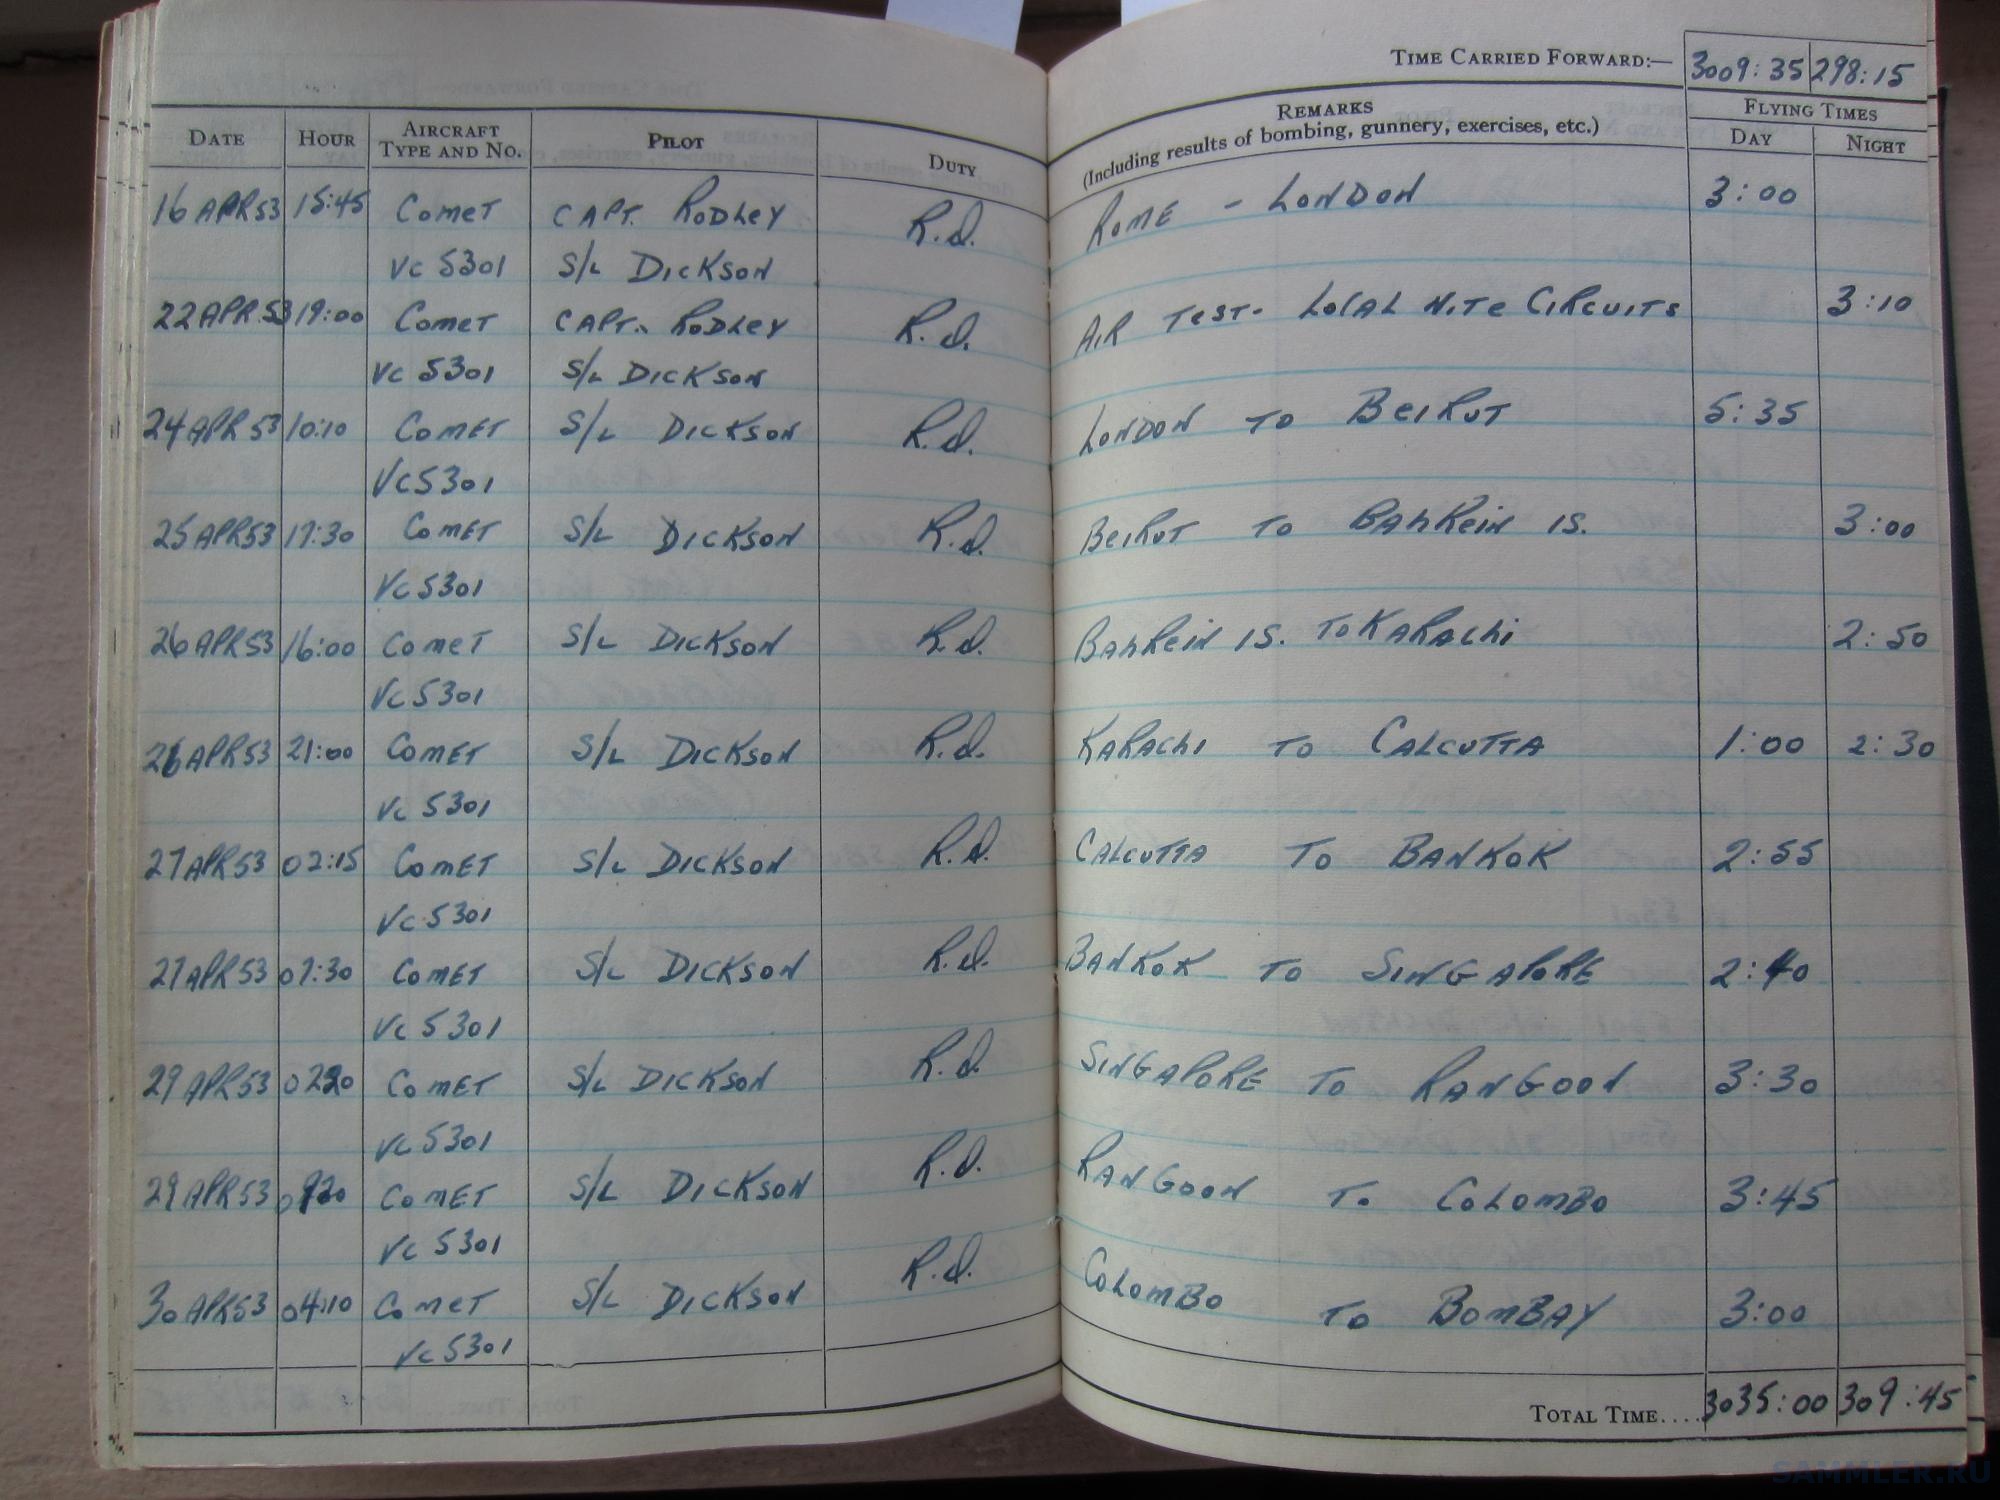 TIME CARRIED FORWARD:— 3009:35 298:15
DATE HOUR AIRCRAFT TYPE AND NO. PILOT DUTY REMARKS (Including results of bombing, gunnery, exercises, etc.) FLYING TIMES DAY NIGHT
16 APR 53 15:45 COMET CAPT. RODLEY R.O. ROME - LONDON 3:00
VC 5301 S/L DICKSON
22 APR 53 19:00 COMET CAPT. RODLEY R.O. AIR TEST- LOCAL NITE CIRCUITS 3:10
VC 5301 S/L DICKSON
24 APR 53 10:10 COMET S/L DICKSON R.O. LONDON TO BEIRUT 5:35
VC5301
25 APR 53 17:30 COMET S/L DICKSON R.O. BEIRUT TO BAHREIN IS. 3:00
VC 5301
26 APR 53 16:00 COMET S/L DICKSON R.O. BAHREIN IS. TO KARACHI 2:50
VC 5301
26 APR 53 21:00 COMET S/L DICKSON R.O. KARACHI TO CALCUTTA 1:00 2:30
VC 5301
27 APR 53 02:15 COMET S/L DICKSON R.O. CALCUTTA TO BANKOK 2:55
VC 5301
27 APR 53 07:30 COMET S/L DICKSON R.O. BANKOK TO SINGAPORE 2:40
VC 5301
29 APR 53 0220 COMET S/L DICKSON R.O. SINGAPORE TO RANGOON 3:30
VC 5301
29 APR 53 0920 COMET S/L DICKSON R.O. RANGOON TO COLOMBO 3:45
VC 5301
30 APR 53 04:10 COMET S/L DICKSON R.O. COLOMBO TO BOMBAY 3:00
VC 5301
TOTAL TIME.... 3035:00 309:45
SAMMLER.RU